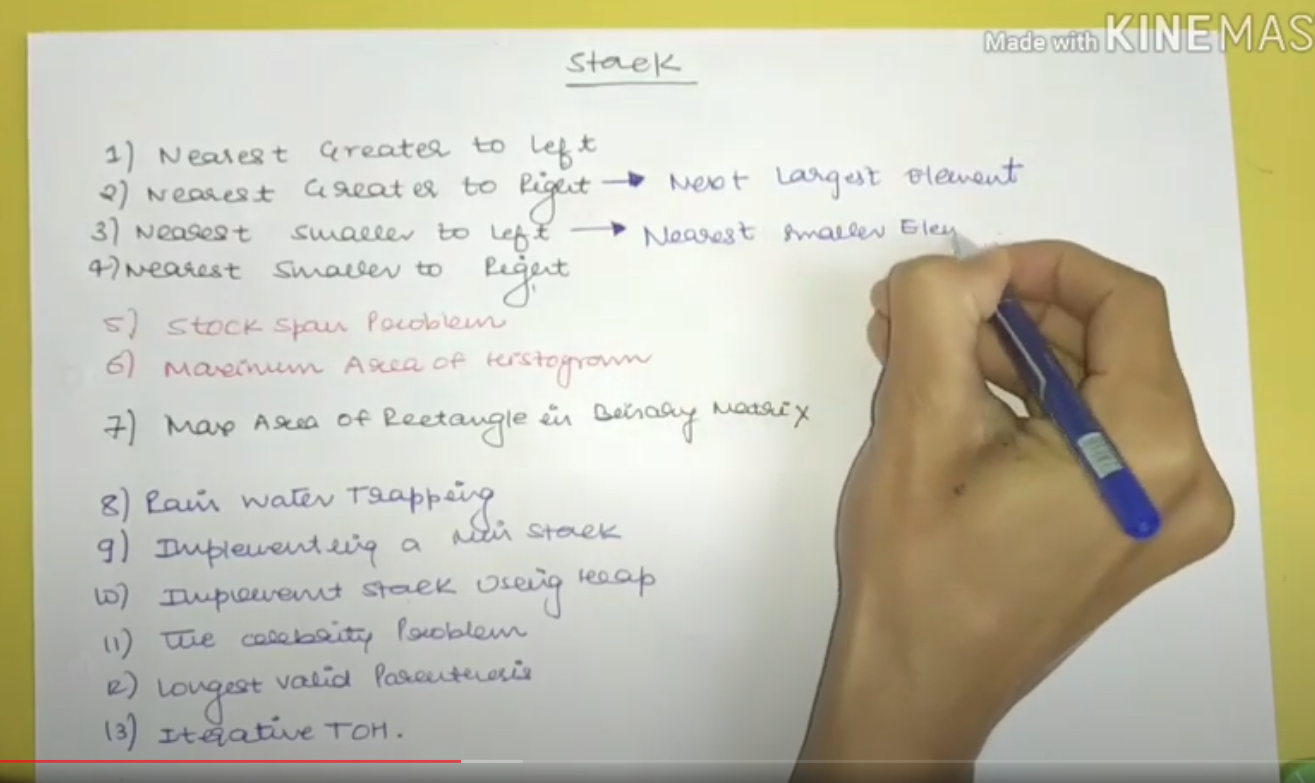 Made with KINEMAS
Stack
1) Nearest Greater to Left
2) Nearest Greater to Right → Next Largest Element
3) Nearest Smaller to Left → Nearest Smaller Elem
4) Nearest Smaller to Right
5) Stock Span Problem
6) Maximum Area of Histogram
7) Max Area of Rectangle in Binary Matrix
8) Rain Water Trapping
9) Implementing a Min Stack
10) Implement Stack Using Heap
11) The Celebrity Problem
12) Longest Valid Parenthesis
13) Iterative TOH.